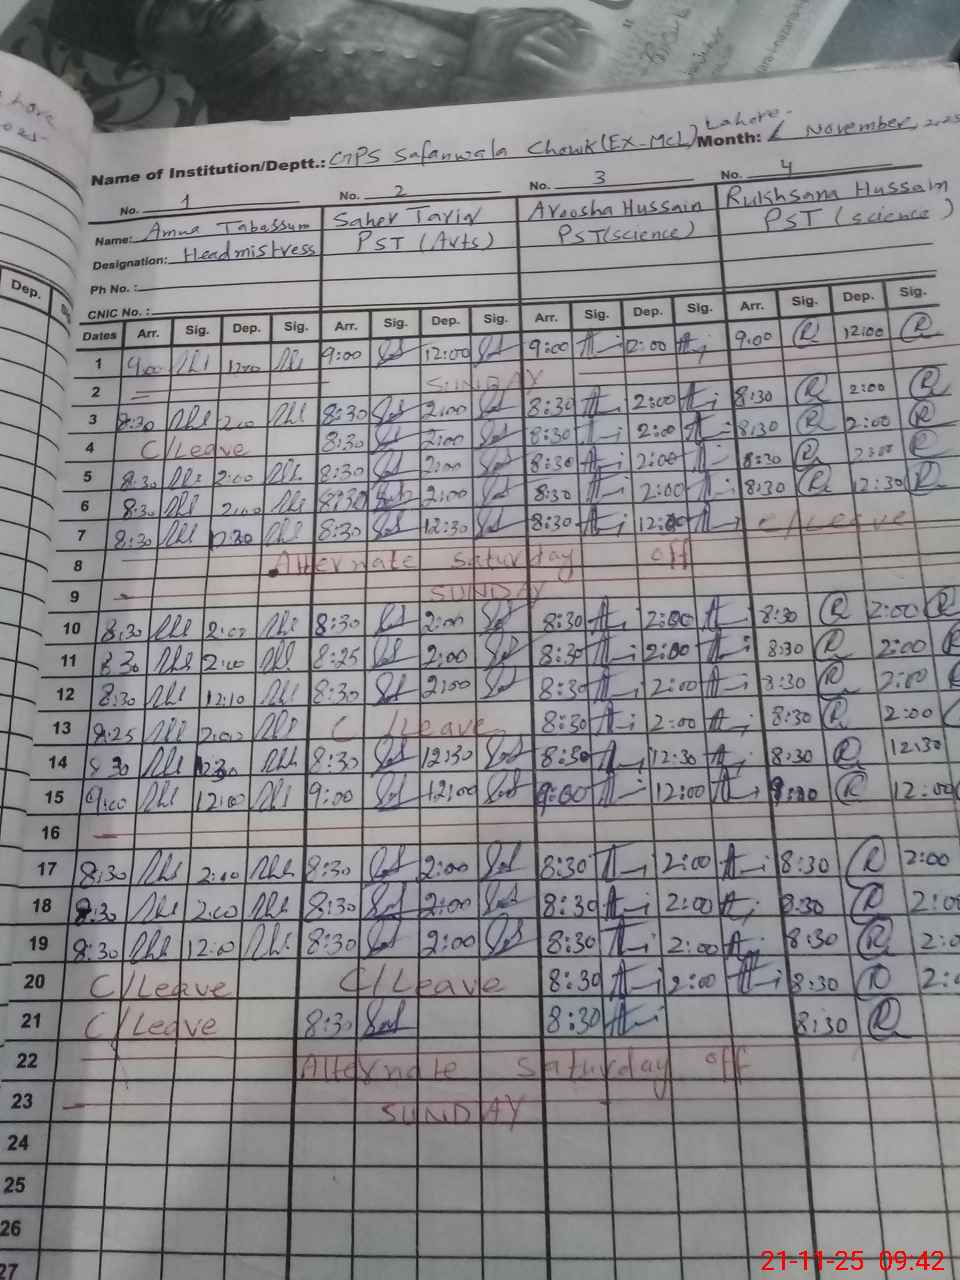 Name of Institution/Deptt.: GPS Safanwala Chowk (EX-MCL) Lahore- Month: November, 2025
No. 1 No. 2 No. 3 No. 4
Name: Amna Tabassum Saher Tariq Aroosha Hussain Rukhsana Hussain
Designation: Headmistress PST (Arts) PST (science) PST (science)
Ph No. :
CNIC No. :
Dep.
Dates Arr. Sig. Dep. Sig. Arr. Sig. Dep. Sig. Arr. Sig. Dep. Sig. Arr. Sig. Dep. Sig.
1 9:00 12:00 9:00 12:00 9:00 12:00 9:00 R 12:00 R
2 SUNDAY
3 8:30 2:00 8:30 2:00 8:30 2:00 8:30 R 2:00 R
4 C/Leave 8:30 2:00 8:30 2:00 8:30 R 2:00 R
5 8:30 2:00 8:30 2:00 8:30 2:00 8:30 R 2:00 R
6 8:30 2:00 8:30 2:00 8:30 2:00 8:30 R 12:30 R
7 8:30 12:30 8:30 12:30 8:30 12:30 C/Leave
8 Alternate Saturday off
9 SUNDAY
10 8:30 2:00 8:30 2:00 8:30 2:00 8:30 R 2:00 R
11 8:30 2:00 8:25 2:00 8:30 2:00 8:30 R 2:00 R
12 8:30 12:10 8:30 2:00 8:30 2:00 8:30 R 2:00
13 8:25 2:00 C/Leave 8:30 2:00 8:30 R 2:00
14 8:30 12:30 8:30 12:30 8:30 12:30 8:30 R 12:30
15 9:00 12:00 9:00 12:00 9:00 12:00 9:00 R 12:00
16
17 8:30 2:00 8:30 2:00 8:30 2:00 8:30 R 2:00
18 8:30 2:00 8:30 2:00 8:30 2:00 8:30 R 2:00
19 8:30 12:00 8:30 2:00 8:30 2:00 8:30 R 2:0
20 C/Leave C/Leave 8:30 2:00 8:30 R 2:
21 C/Leave 8:30 8:30 8:30 R
22 Alternate Saturday off
23 SUNDAY
24
25
26
27
21-11-25 09:42